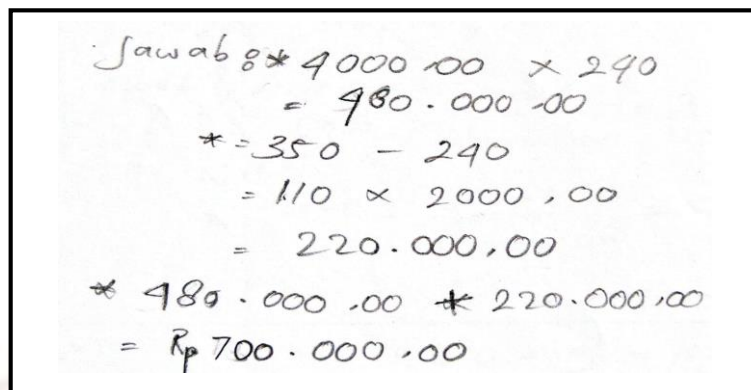 Jawab : * 4000,00 × 240
= 480.000,00
* = 350 - 240
= 110 × 2000,00
= 220.000,00
* 480.000,00 + 220.000,00
= Rp 700.000,00